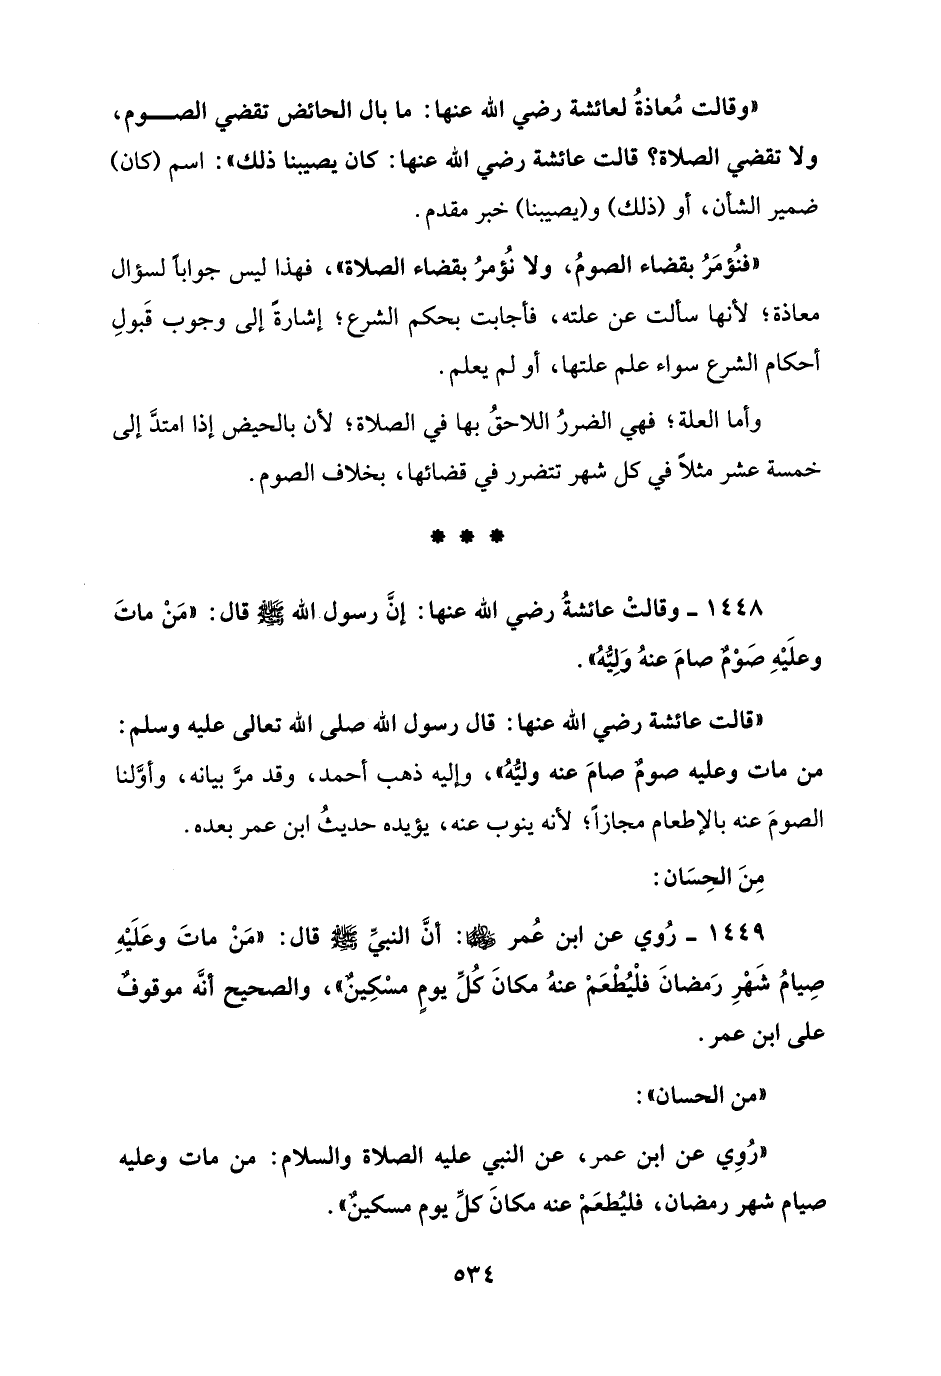 «وقالت مُعاذةُ لعائشة رضي الله عنها: ما بال الحائض تقضي الصـــوم،
ولا تقضي الصلاة؟ قالت عائشة رضي الله عنها: كان يصيبنا ذلك»: اسم (كان)
ضمير الشأن، أو (ذلك) و(يصيبنا) خبر مقدم.
«فنُؤمَرُ بقضاء الصومُ، ولا نُؤمرُ بقضاء الصلاة»، فهذا ليس جواباً لسؤال
معاذة؛ لأنها سألت عن علته، فأجابت بحكم الشرع؛ إشارةً إلى وجوب قَبولِ
أحكام الشرع سواء علم علتها، أو لم يعلم.
وأما العلة؛ فهي الضررُ اللاحقُ بها في الصلاة؛ لأن بالحيض إذا امتدَّ إلى
خمسة عشر مثلاً في كل شهر تتضرر في قضائها، بخلاف الصوم.
* * *
١٤٤٨ - وقالتْ عائشةُ رضي الله عنها: إنَّ رسول الله ﷺ قال: «مَنْ ماتَ
وعلَيْهِ صَوْمٌ صامَ عنهُ وَلِيُّهُ».
«قالت عائشة رضي الله عنها: قال رسول الله صلى الله تعالى عليه وسلم:
من مات وعليه صومٌ صامَ عنه وليُّهُ»، وإليه ذهب أحمد، وقد مرَّ بيانه، وأوَّلنا
الصومَ عنه بالإطعام مجازاً؛ لأنه ينوب عنه، يؤيده حديثُ ابن عمر بعده.
مِنَ الحِسَان:
١٤٤٩ - رُوي عن ابن عُمر ﷺ: أنَّ النبيِّ ﷺ قال: «مَنْ ماتَ وعَلَيْهِ
صِيامُ شَهْرِ رَمضانَ فلْيُطْعَمْ عنهُ مكانَ كُلِّ يومٍ مسْكِينٌ»، والصحيح أنَّه موقوفٌ
على ابن عمر.
«من الحسان»:
«رُوِي عن ابن عمر، عن النبي عليه الصلاة والسلام: من مات وعليه
صيام شهر رمضان، فليُطعَمْ عنه مكانَ كلِّ يوم مسكينٌ».
٥٣٤